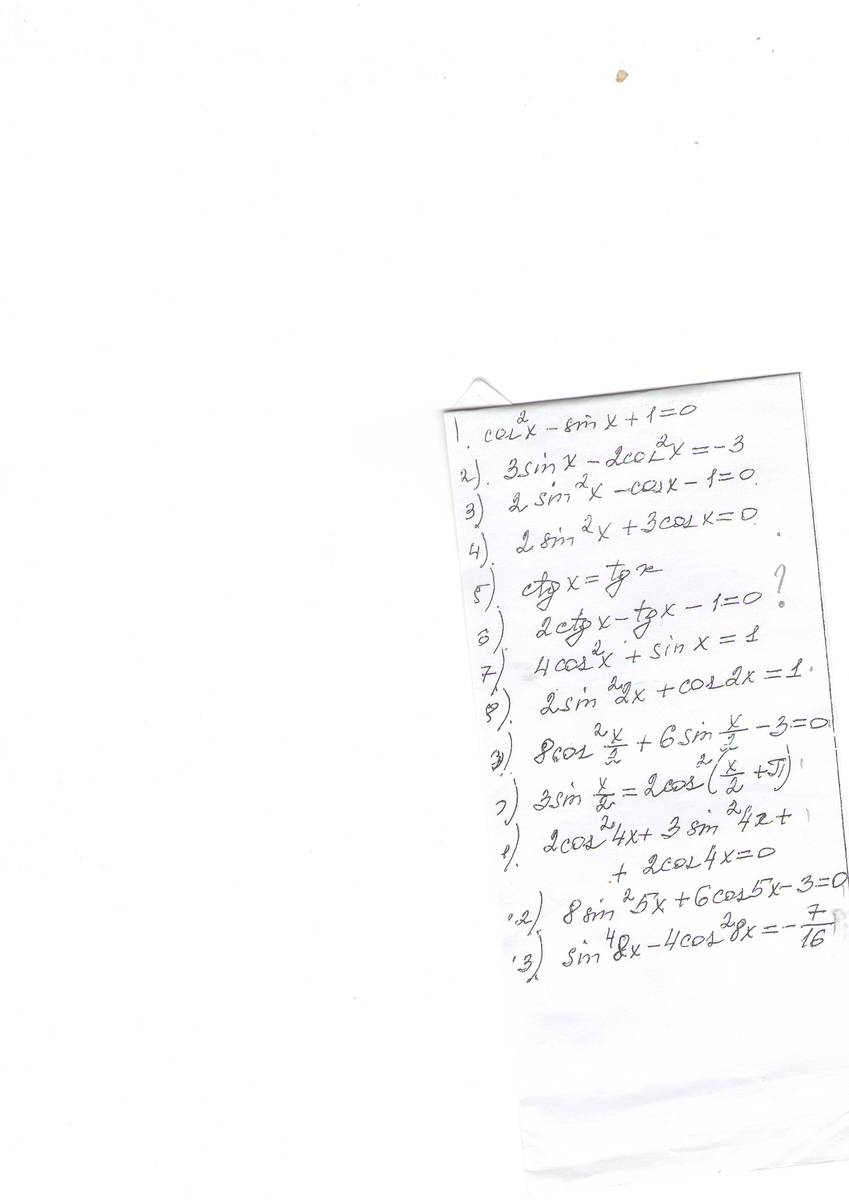 1. cos²x – sin x + 1 = 0
2). 3 sin x – 2cos²x = –3
3) 2 sin²x – cos x – 1 = 0.
4). 2 sin²x + 3 cos x = 0.
5). ctg x = tg x
6). 2ctg x – tg x – 1 = 0 ?
7) 4cos²x + sin x = 1
8). 2 sin²2x + cos 2x = 1.
9) 8cos² x/2 + 6 sin x/2 – 3 = 0
) 3 sin x/2 = 2cos² (x/2 + π)
1). 2cos²4x + 3 sin²4x +
+ 2cos 4x = 0
12). 8 sin²5x + 6 cos 5x – 3 = 0
13) sin⁴8x – 4cos²8x = – 7/16